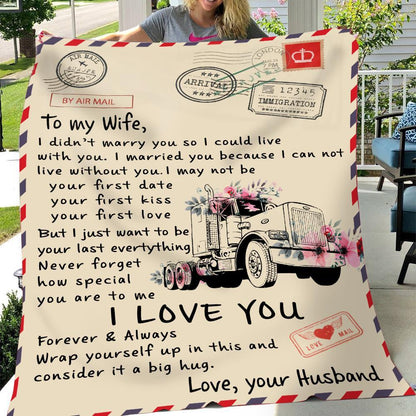 AIR MAIL
LONDON
ARRIVAL
12345
IMMIGRATION
BY AIR MAIL
To my Wife,
I didn't marry you so I could live
with you. I married you because I can not
live without you. I may not be
your first date
your first kiss
your first love
But I just want to be
your last everthing
Never forget
how special
you are to me
I LOVE YOU
Forever & Always
Wrap yourself up in this and
consider it a big hug.
LOVE MAIL
Love, your Husband